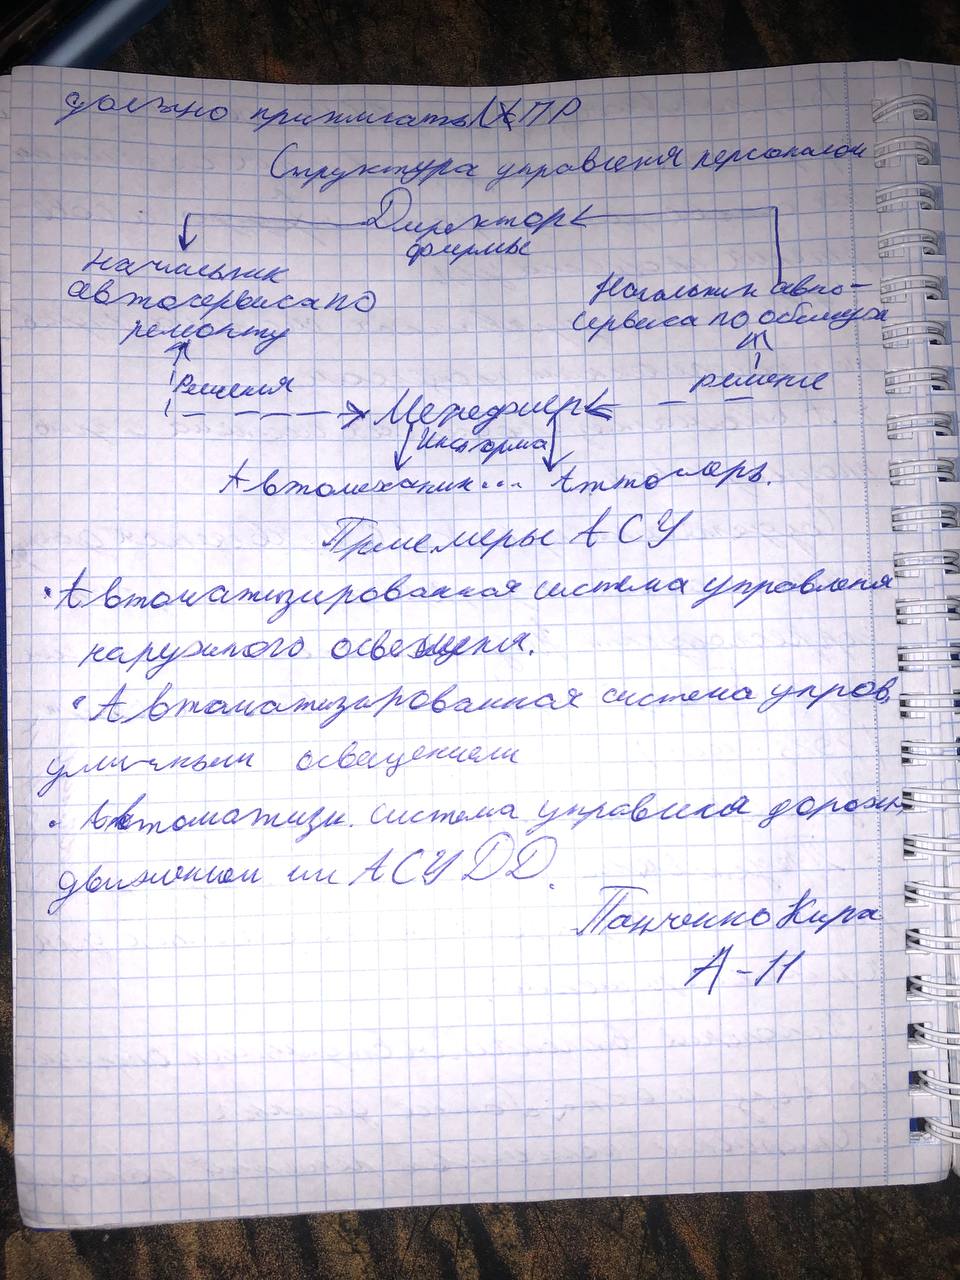 должно принимать ЛПР
Структура управленя персоналом
Директор
фирмы
начальник
автосервиса по
ремонту
Начальник авто-
сервиса по обслуж
Решения
решение
Менеджер
Информа
Автомеханик... Автослерь.
Примеры АСУ
• Автоматизированная система управленя
наружного освещеня.
• Автоматизированная система управ.
уличным освещением
• Автоматизи. система управлени дорожн.
движением или АСУДД.
Панченко Кира
А-11